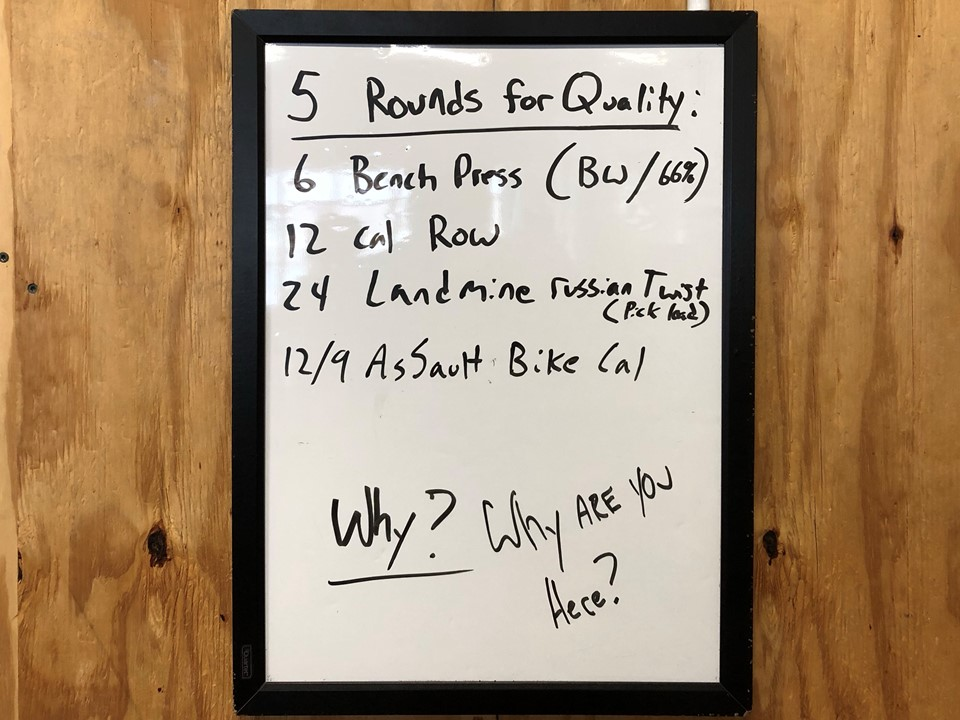 5 Rounds for Quality:
6 Bench Press (BW/66%)
12 cal Row
24 Landmine russian Twist
(Pick load)
12/9 AsSault Bike Cal
Why? Why ARE YOU
Here?
Quartet